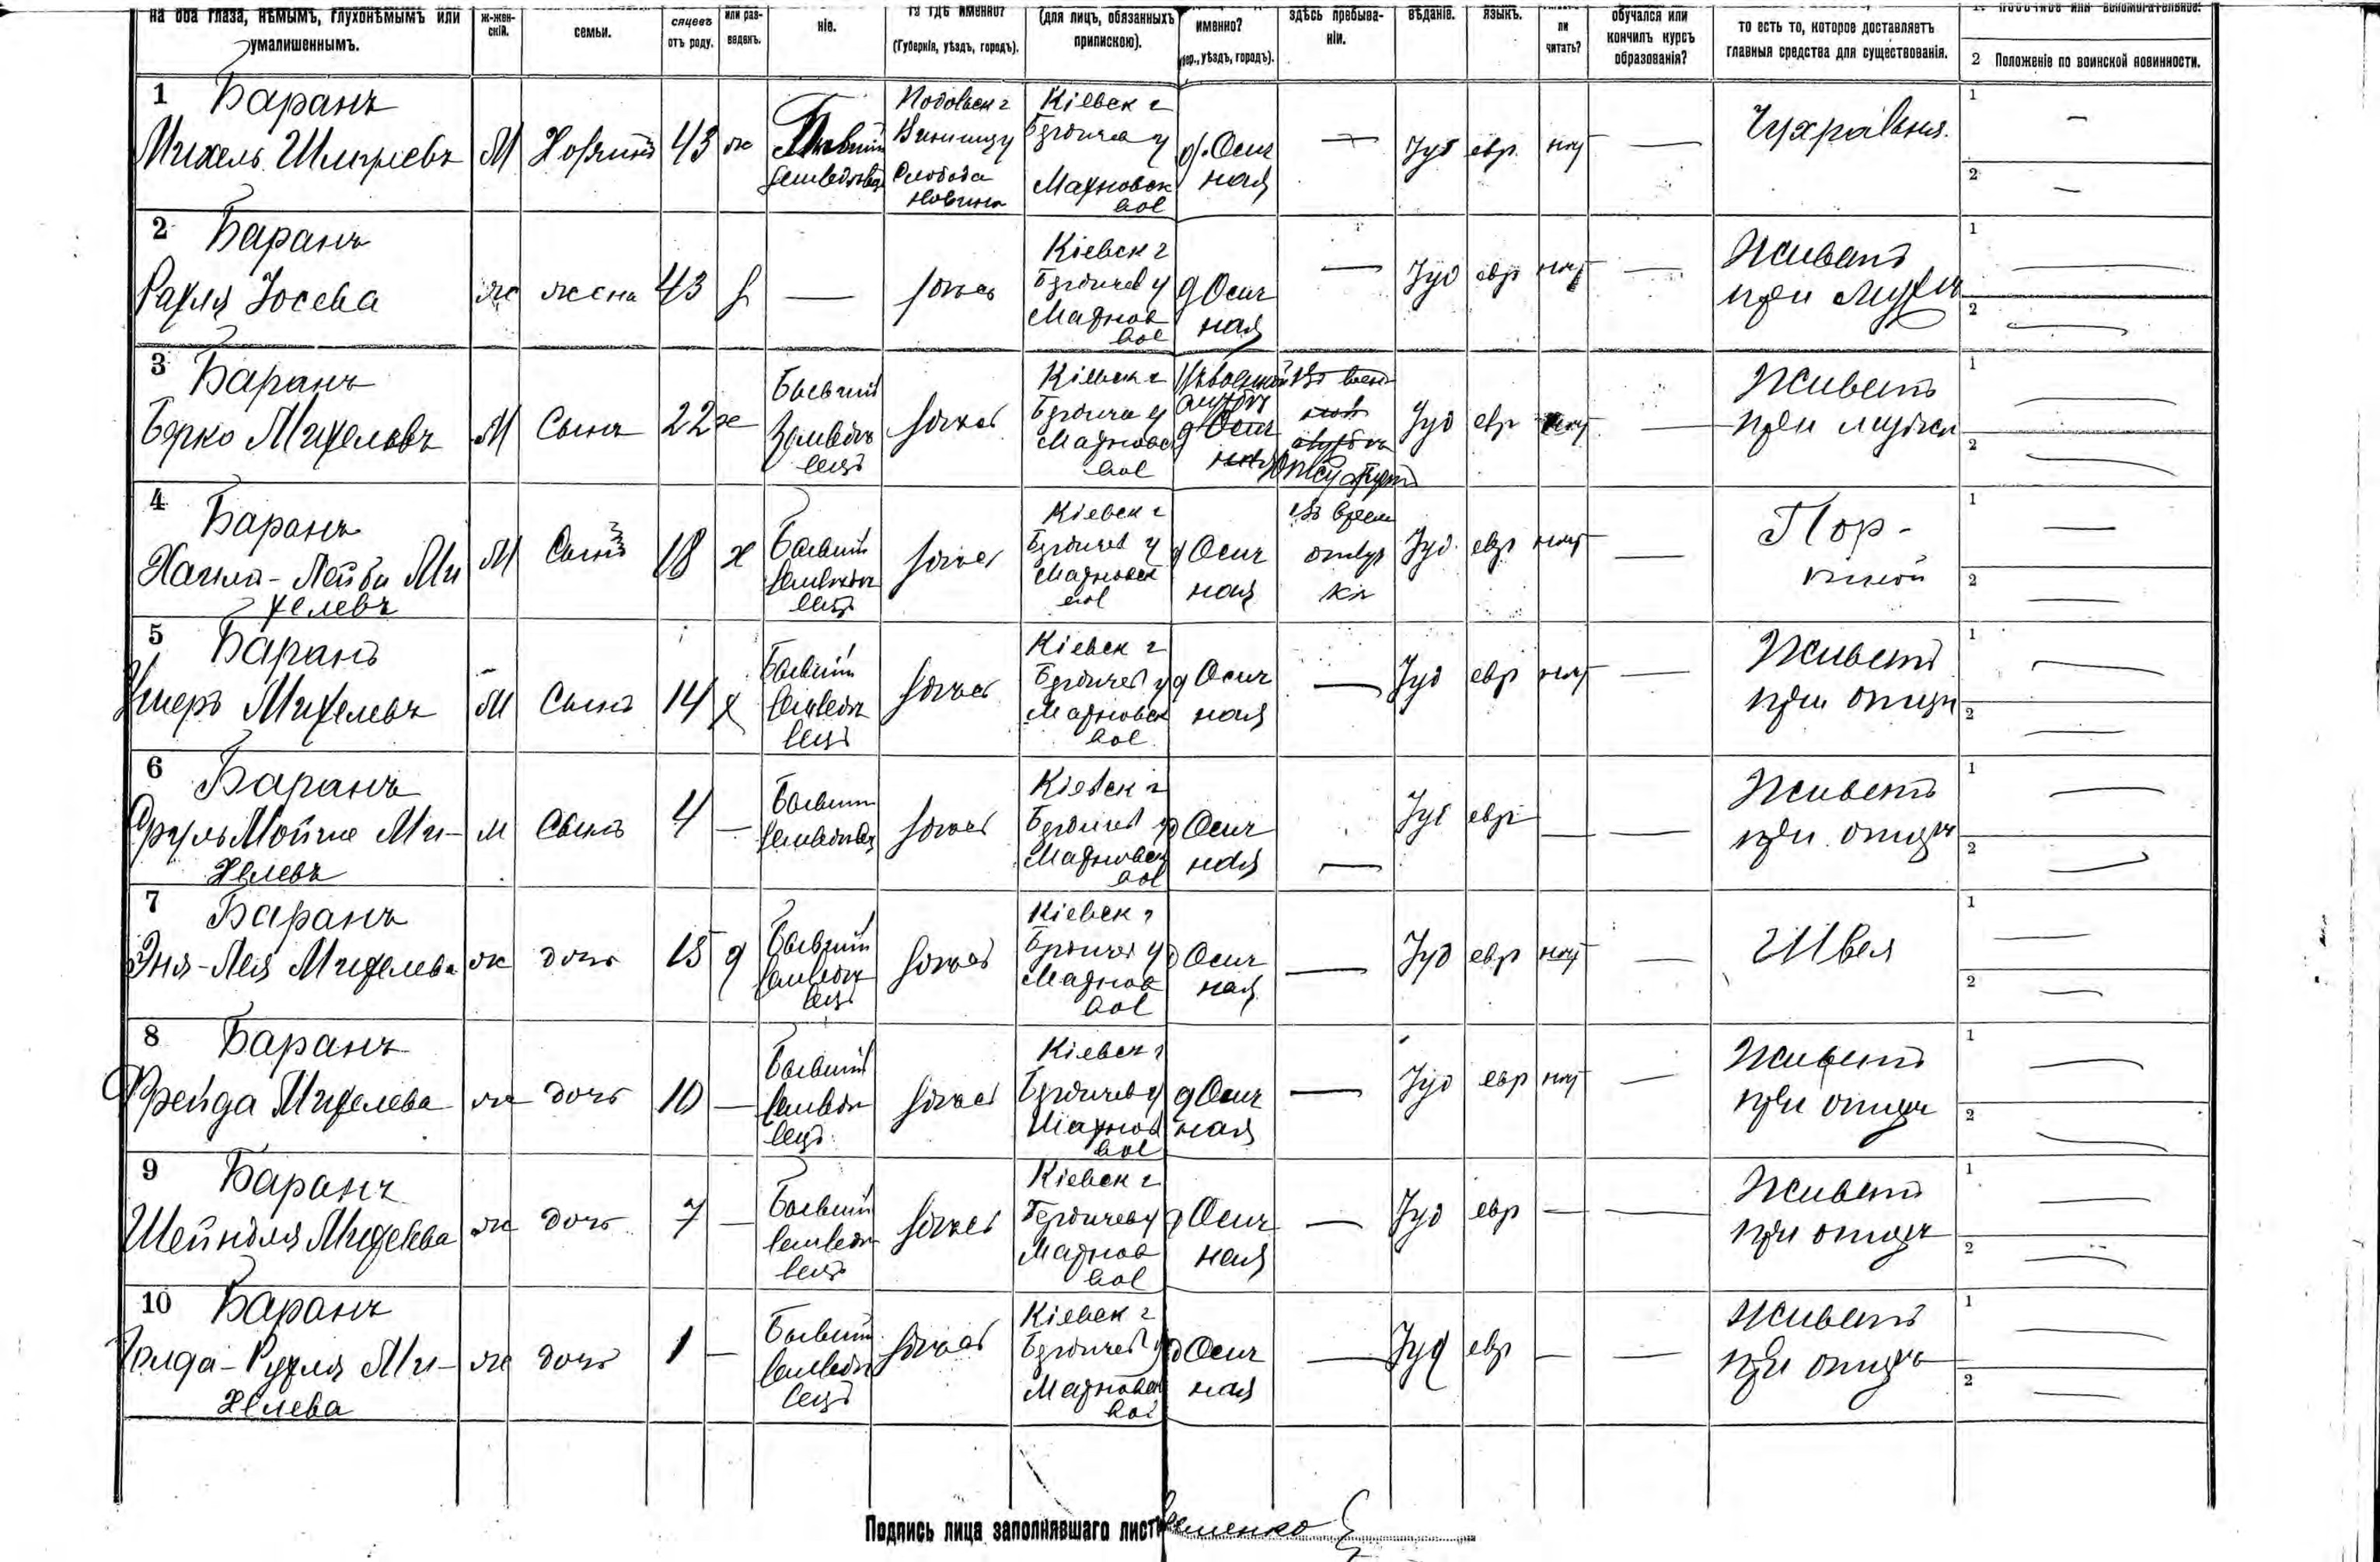 на оба глаза, нѣмымъ, глухонѣмымъ или
умалишеннымъ.
ж-жен-
скій.
семьи.
сяцевъ
отъ роду.
или раз-
веденъ.
ніе.
(Губернія, уѣздъ, городъ).
(для лицъ, обязанныхъ
припискою).
именно?
уѣздъ, городъ).
здѣсь пребыва-
ніи.
вѣданіе.
языкъ.
ли
читать?
обучался или
кончилъ курсъ
образованія?
то есть то, которое доставляетъ
главныя средства для существованія.
2 Положеніе по воинской повинности.
1 Баранъ
Михель
М
43
Кіевск г
Махновск
вол
д. Осич
ная
—
Іуд
евр.
нѣт
—
1 —
2 —
2 Баранъ
Рахля Іосева
ж
жена
43
—
здѣсь
Кіевск г
Бердичев у
Махнов
вол
д Осич
ная
—
Іуд
евр
нѣт
—
Живетъ
при мужѣ
1 —
2 —
3 Баранъ
Берко Михелевъ
М
Сынъ
22
х
Бывшій
земледѣ
лецъ
здѣсь
Кіевск г
Махновск
вол
Іуд
евр
нѣт
—
Живетъ
при
1 —
2 —
4 Баранъ
Лейба Ми
хелевъ
М
Сынъ
18
х
Бывшій
земледѣ
лецъ
здѣсь
Кіевск г
Бердичев у
Махновск
вол
д Осич
ная
отлуч
кѣ
Іуд.
евр
нѣт
—
Пор-
тной
1 —
2 —
5 Баранъ
Михелевъ
М
Сынъ
14
х
Бывшій
земледѣ
лецъ
здѣсь
Кіевск г
Бердичев у
Махновск
вол.
д Осич
ная
—
Іуд
евр
нѣт
—
Живетъ
при отцѣ
1 —
2 —
6 Баранъ
Сруль Мойше Ми-
хелевъ
м
Сынъ
4
—
Бывшій
здѣсь
Кіевск г
Бердичев у
Махновск
вол
д Осич
ная
—
Іуд
евр
—
—
Живетъ
при отцѣ
1 —
2 —
7 Баранъ
Эня-Лея Михелева
ж
дочь
15
д
Бывшій
земледѣ
лецъ
здѣсь
Кіевск г
Бердичев у
Махнов
вол
д Осич
ная
—
Іуд
евр
нѣт
—
Швея
1 —
2 —
8 Баранъ
Фрейда Михелева
ж
дочь
10
—
Бывшій
земледѣ
лецъ
здѣсь
Кіевск г
Бердичев у
Махнов
вол
д Осич
ная
—
Іуд
евр
нѣт
—
Живетъ
при отцѣ
1 —
2 —
9 Баранъ
Шейндля Михелева
ж
дочь
7
—
Бывшій
земледѣ
лецъ
здѣсь
Кіевск г
Бердичев у
Махнов
вол
д Осич
ная
—
Іуд
евр
—
—
Живетъ
при отцѣ
1 —
2 —
10 Баранъ
Голда-Рухля Ми-
хелева
ж
дочь
1
—
Бывшій
земледѣ
лецъ
здѣсь
Кіевск г
Бердичев у
Махновск
вол
д Осич
ная
—
Іуд
евр
—
—
Живетъ
при отцѣ
1 —
2 —
Подпись лица заполнявшаго листъ